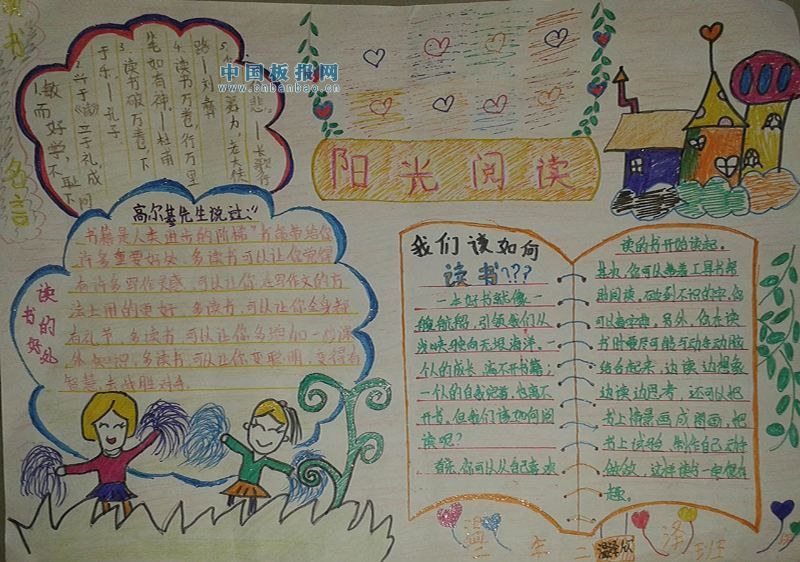 读书名言
1.敏而好学,不耻下问
2.兴于《诗》,立于礼,成
于乐—孔子
3.读书破万卷,下
笔如有神。—杜甫
4.读书万卷,行万里
路—刘彝
5.
努力,老大徒
悲。—长歌行
中国板报网
www.cnbanbao.cn
阳光阅读
读书的好处
高尔基先生说过:“
书籍是人类进步的阶梯”书能带给你
许多重要好处。多读书可以让你觉得
有许多写作灵感,可以让你在写作文的方
法上用的更好。多读书,可以让你全身都
有礼节,多读书,可以让你多增加一些课
外知识。多读书,可以让你变聪明,变得有
智慧,去战胜对手。
我们该如何
读书???
一本好书就像一
艘航船,引领我们从
浅峡驶向无垠海洋。一
个人的成长,离不开书籍;
一个人的自我完善,也离不
开书。但我们该如何阅
读呢?
首先,你可以从自己喜欢
读的书开始读起。
其次,你可以准备工具书帮
助阅读,碰到不识的字,你
可以查字典。另外,你在读
书时要尽可能与动手动脑
结合起来,边读边想象
边读边思考,还可以把
书上情景画成图画,把
书上试验,制作自己动手
做做,这样读书一定很有
趣。
二年二
班